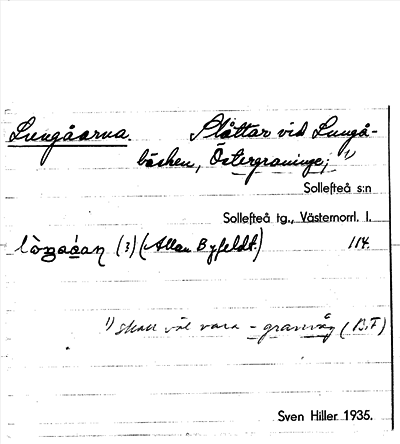 Lungåarna. Slåttar vid Lungå-
bäcken, Östergraninge; 1)
Sollefteå s:n
Sollefteå tg., Västernorrl. l.
(3) (Allan Byfeldt.) 114.
1) skall väl vara - graninge (B.F)
Sven Hiller 1935.